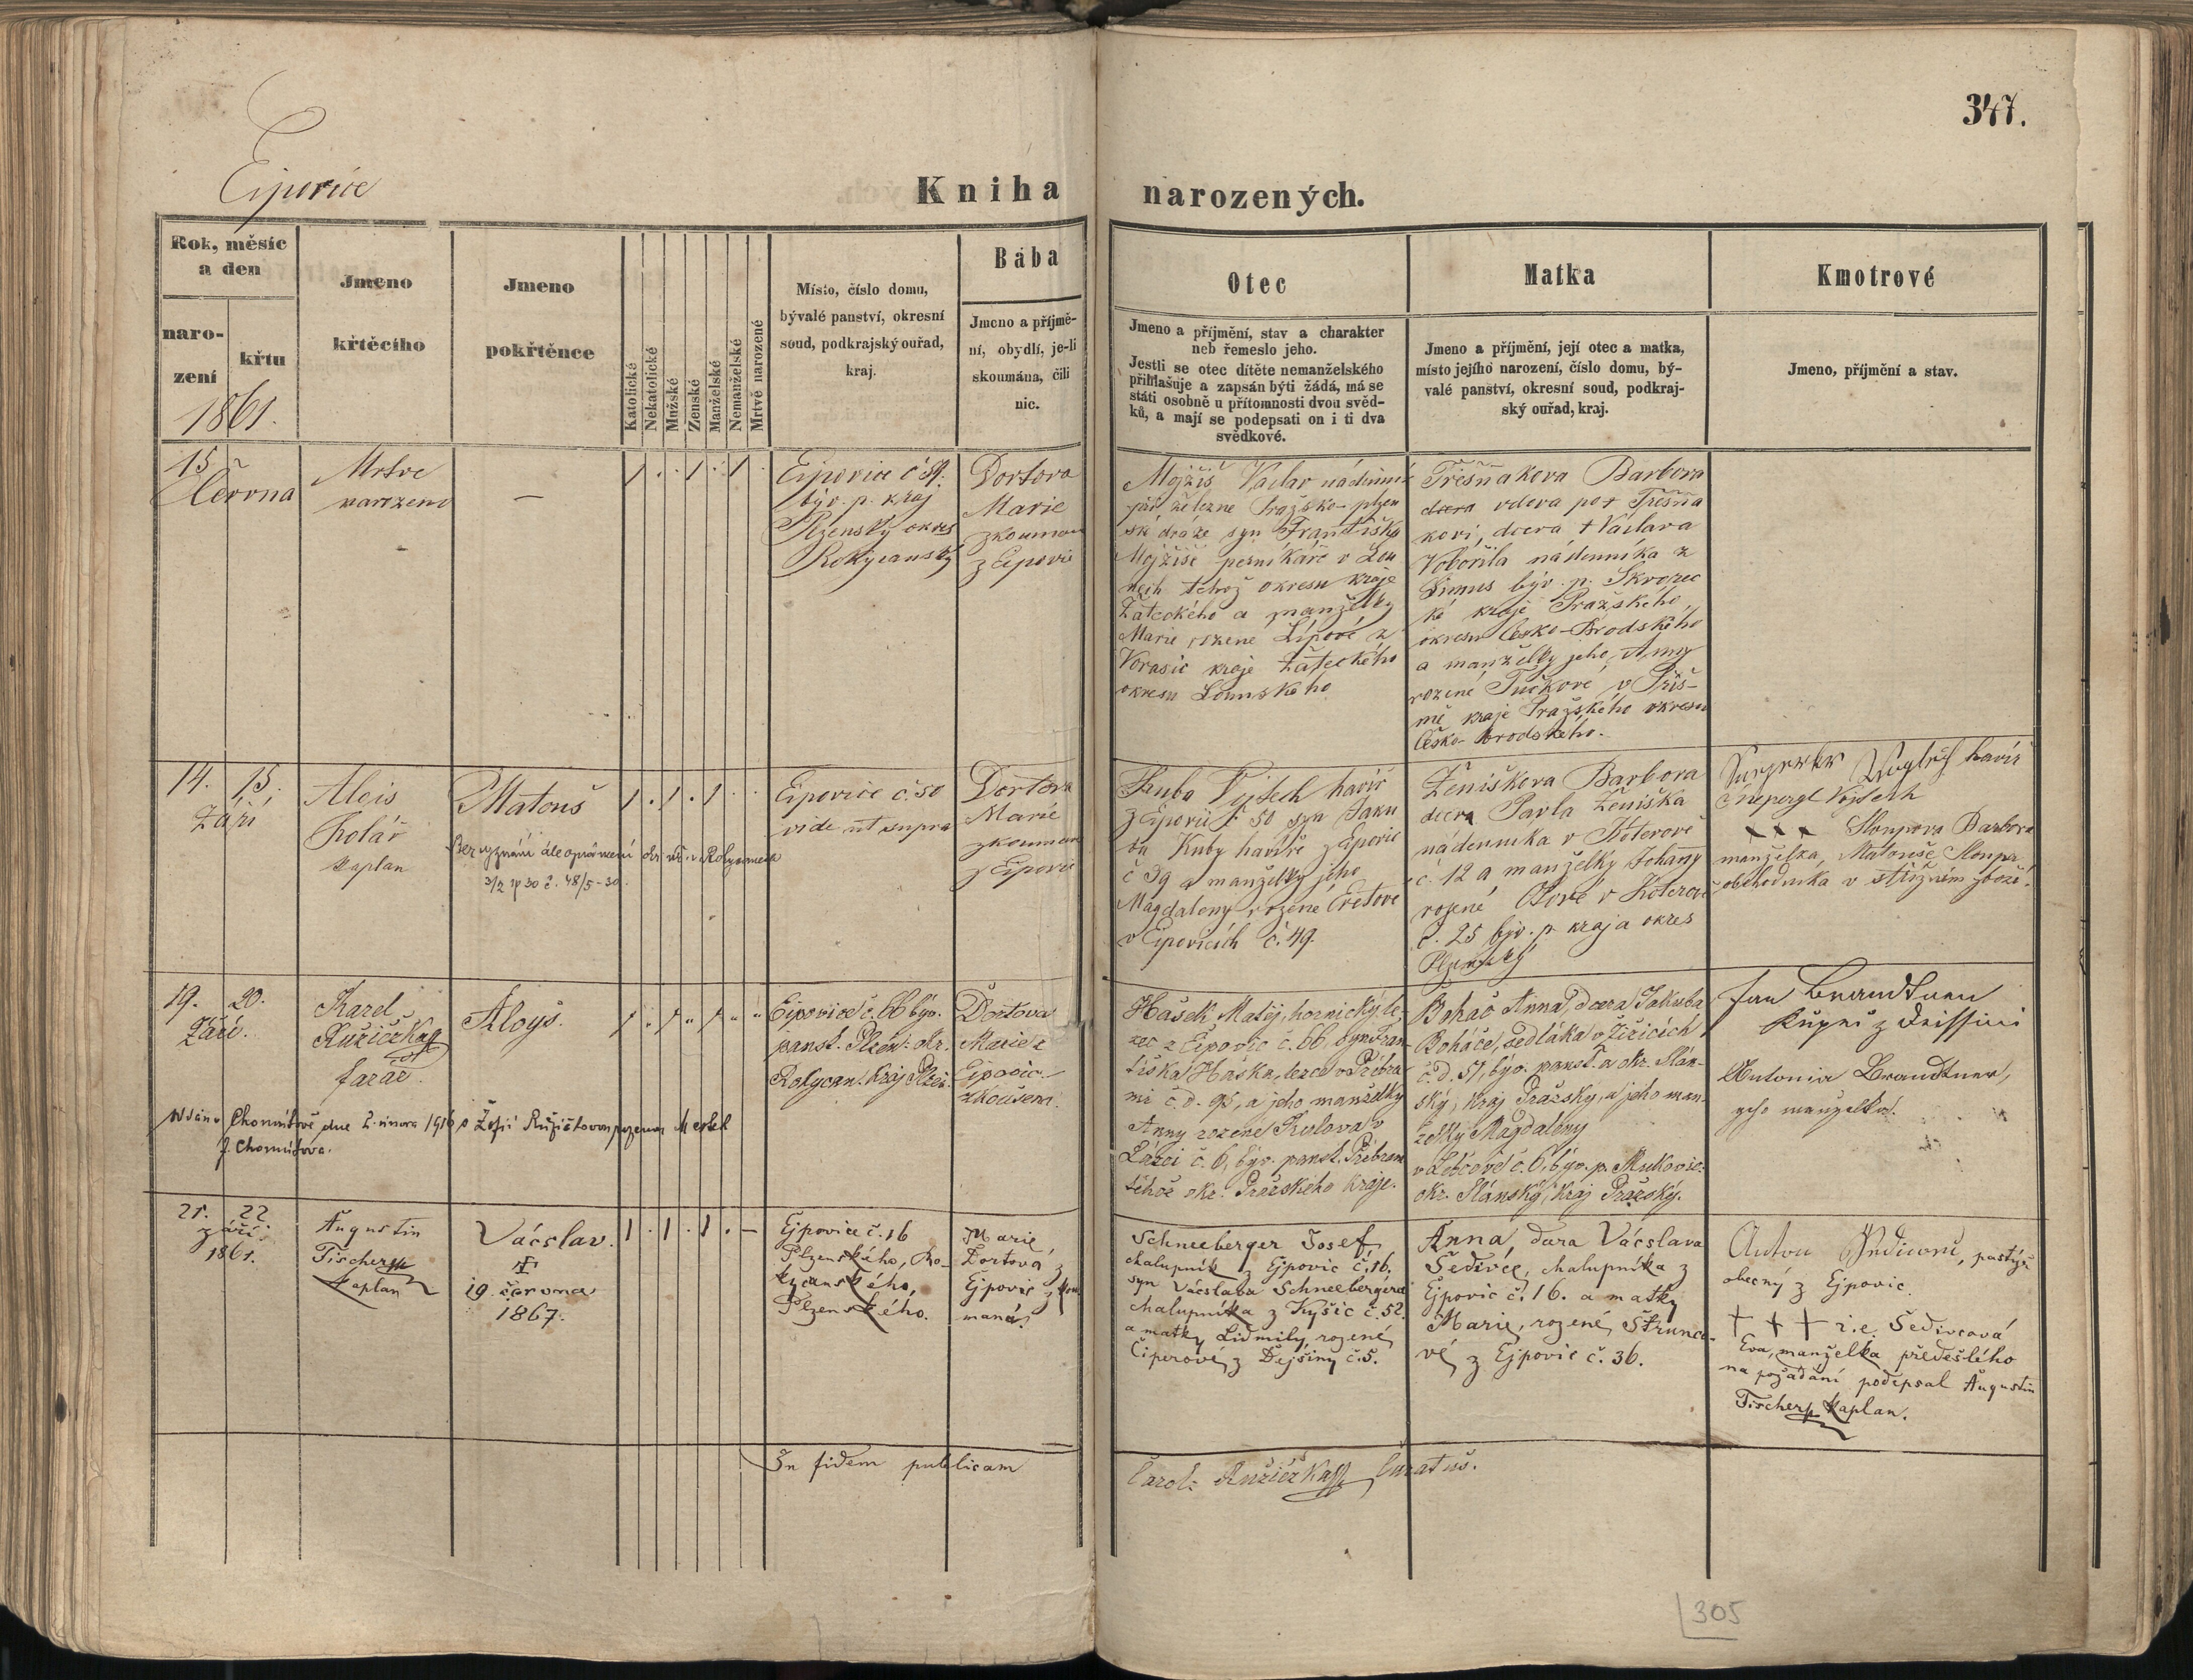 347.
Ejpovice
Kniha narozených.
Rok, měsíc
a den
naro-
zení
křtu
1861.
Jmeno
křtěcího
Jmeno
pokřtěnce
Katolické
Nekatolické
Mužské
Ženské
Manželské
Nemanželské
Mrtvě narozené
Místo, číslo domu,
bývalé panství, okresní
soud, podkrajský ouřad,
kraj.
Bába
Jmeno a příjmě-
ní, obydlí, je-li
skoumána, čili
nic.
Otec
Jmeno a příjmění, stav a charakter
neb řemeslo jeho.
Jestli se otec dítěte nemanželského
přihlašuje a zapsán býti žádá, má se
státi osobně u přítomnosti dvou svěd-
ků, a mají se podepsati on i ti dva
svědkové.
Matka
Jmeno a příjmění, její otec a matka,
místo jejího narození, číslo domu, bý-
valé panství, okresní soud, podkraj-
ský ouřad, kraj.
Kmotrové
Jmeno, příjmění a stav.
15
Června
Mrtvě
narozeno
—
1 . . 1 . 1 .
Ejpovice č
býv. p. kraj
Plzenský okres
Rokycanský
Dortova
Marie
zkouman
z Ejpovic
Mojžiš Vaclav nádenník
při železne Pražsko-plzen
ské dráze syn Františka
Mojžiše perníkáře v Lou
nech tehož okresu kraje
Žateckého a manželky
Marie rozene Lípové z
Vorasic kraje Žateckého
okresu Lounského
Třešňakova Barbora
dcera vdova po + Třešňa
kovi, dcera + Václava
Vobořila nádenníka z
býv. p. Skvorec
ké kraje Pražského,
okresu Česko-Brodského
a manželky jeho Anny
rozené Tučkové v Přiš-
mě kraje Pražského okresu
Česko-brodského.
14. 15.
Září
Alois
Kolář
kaplan
Matouš
1 . 1 . 1 . .
Bez vyznání dle oznámení okr. uř. v Rokycanech
č. 48/5-30.
Ejpovice č. 50
vide ut supra
Dortova
Marie
zkouman
z Ejpovic
Kuba Vojtech havíř
z Ejpovic č 50 syn Jaku
ba Kuby havíře z Ejpovic
č 39 a manželky jeho
Magdaleny rozene Cretove
v Ejpovicích č. 49.
Ženiškova Barbora
dcera Pavla Ženiška
nádenníka v Koterově
č. 12 a manželky Johanny
rozené v Koterově
č. 25 býv. p. kraja okres
Plzenský
havíř
Šnepergr Vojtech
x x x Slonpova Barbora
manželka Matouše Slonpa
obchodnika v střižném zboží.
19. 20.
Září.
Karel
Růžička
farář.
Aloys.
1 „ 1 „ 1 „ „
Ejpovice č. 66 býv.
panst. Plzeň. okr.
Rokycan. kraj Plzeň.
Dortova
Marie z
Ejpovic.
zkoušena.
Chomútově dne 2. února 1916 s Žofií Růžičkovou
z Chomútova.
Hašek Matěj, hornický le-
zec z Ejpovic č. 66, syn Fran-
tiška Háška, lezce v Příbra-
mi č. d. 95, a jeho manželky
Anny rozené Kulova v
Lázci č. 6, býv. panst. Příbram
téhož okr. Pražského kraje.
Boháč Anna, dcera Jakuba
Boháče, sedláka v Žižicích
č. d. 51, býv. panst. a okr. Slán-
ský, kraj Pražský, a jeho man-
želky Magdalény
č. 6, býv. p. Mukovic.
okr. Slánský, kraj Pražský.
Jan Brandtner
Antonia Brandtner,
geho manzelka.
21. 22.
září.
1861.
Augustin
Fischer
kaplan
Vácslav.
†
19. června
1867.
1 . 1 . 1 . —
Ejpovice č. 16
Plzenského, Ro-
kycanského,
Plzenského.
Marie
Dortova z
Ejpovic zkou
maná.
Schneeberger Josef,
chalupník z Ejpovic č. 16.
syn Vácslava Schneebergera
chalupníka z Kyšic č. 52.
a matky Lidmily, rozené
Ciperové, z Dejšiny č. 5.
Anna, dcera Vácslava
Šedivce, chalupníka z
Ejpovic č. 16. a matky
Marie, rozené Štrunco-
vé, z Ejpovic č. 36.
Anton , pastýř
obecný z Ejpovic.
† † † i. e. Šedivcová
Eva, manželka předešlého
na požádání podepsal Augustin
Fischer, kaplan.
In fidem publicam
Carol: Růžička Curatus.
305